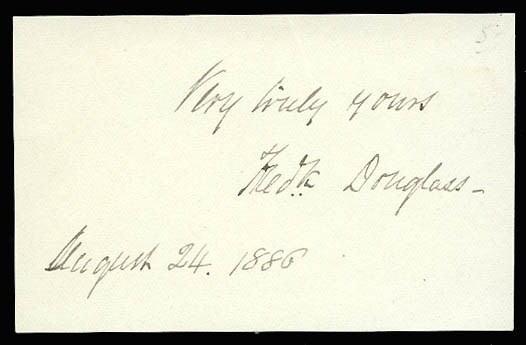 Very truly yours
Fredk Douglass -
August 24. 1886